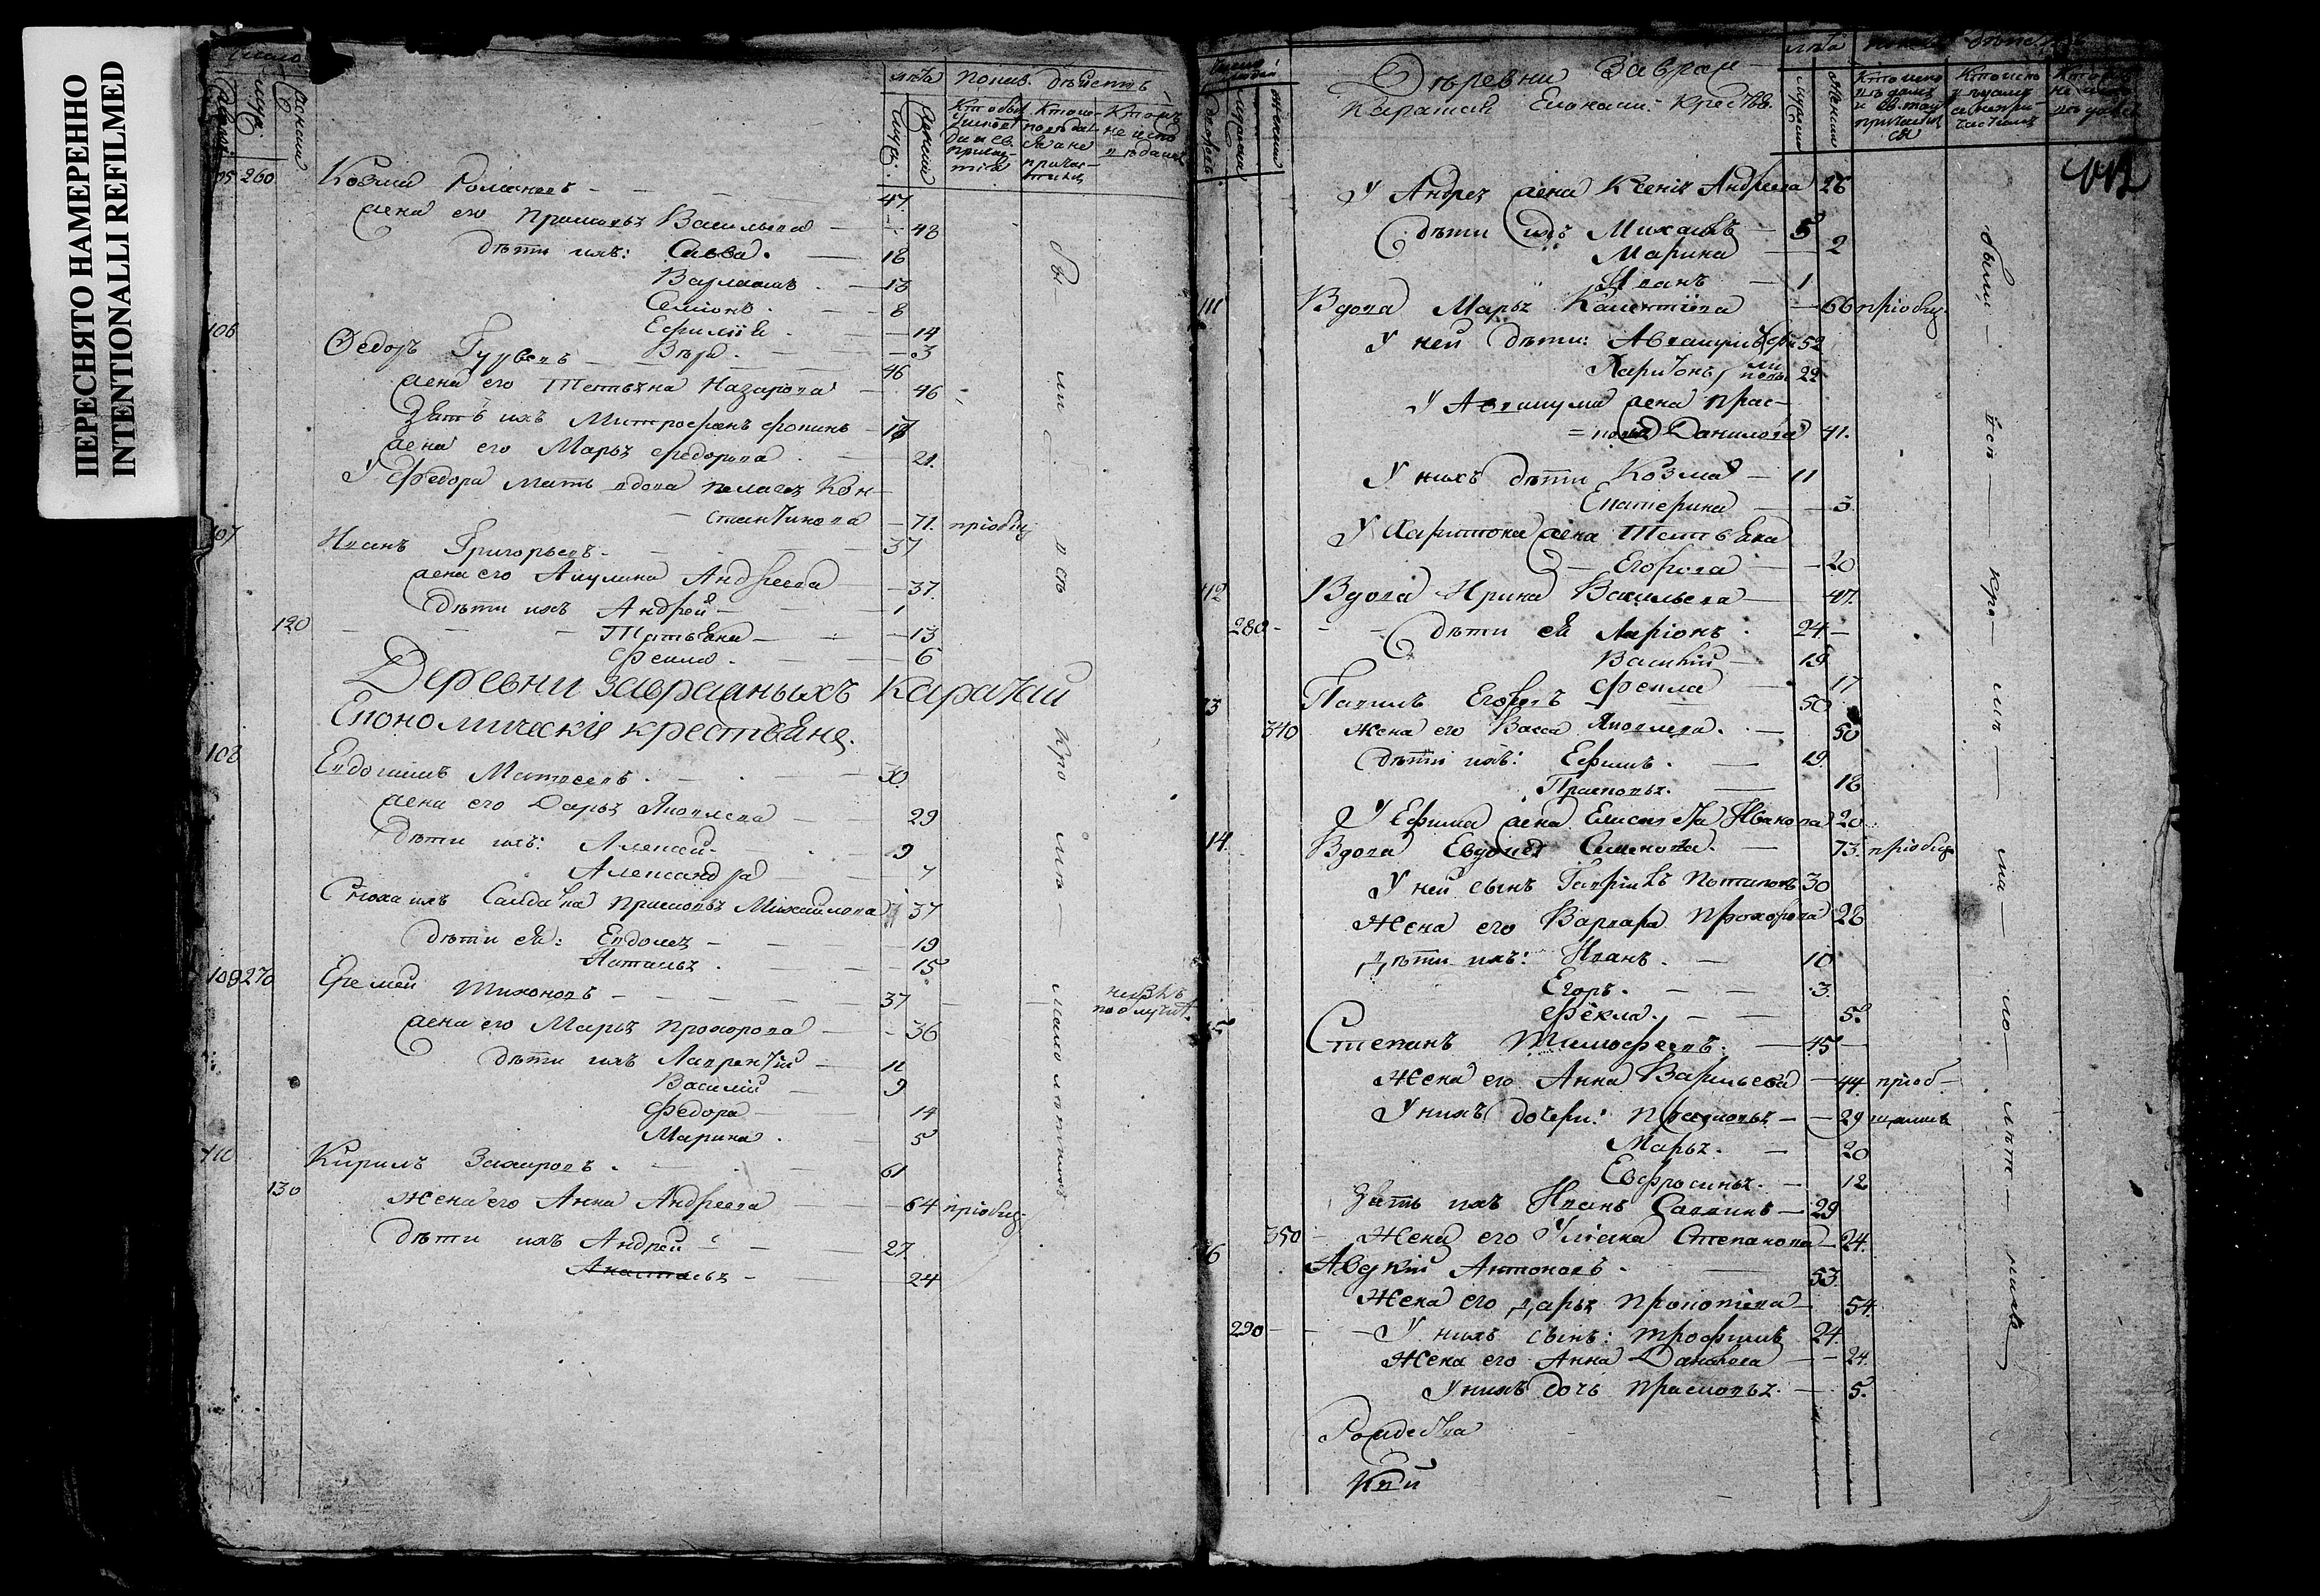 ПЕРЕСНЯТО НАМЕРЕННО
INTENTIONALLI REFILMED
Число
лѣта
Кто не исповѣдался
105 260 Козма Романовъ 47
жена его Прасковья Васильева 48
дѣти ихъ: Савва 18
Варламъ 13
Семіонъ 8
Ефимія 14
Вѣра 3
106 Ѳедоръ Гурьевъ 46
жена его Татьяна Назарова 46
Зять ихъ Митрофанъ Фокинъ 18
жена его Марья Федорова 21
У Федора мать вдова Пелагея Кон-
стантинова 71 пріобщ.
107 Иванъ Григорьевъ 37
жена его Акулина Андреева 37
дѣти ихъ Андрей 1
120 Татьяна 13
Фекла 6
Деревни Завражныхъ Каратай
Економическія крестьяне
108 Евдокимъ Матвеевъ 30
жена его Дарья Яковлева 29
дѣти ихъ: Алексей 9
Александра 7
Сноха ихъ Салдатка Прасковья Михайлова 37
дѣти ея: Евдокея 19
Наталья 15
109 270 Еремей Тихоновъ 37
жена его Марья Прохорова 36
дѣти ихъ Лаврентій 11
Василій 9
Федора 14
Марина 5
110 Кирилъ Захаровъ 61
130 жена его Анна Андреева 64 пріобщ.
дѣти ихъ Андрей 27
Анастасья 24
бы ли у исп всѣ кро мѣ малолѣтнихъ
Деревни Завраж-
Каратай Економи. Крестья.
У Андрея жена Ксенія Андреева 26
дѣти ихъ Михаилъ 5
Марина 2
Иванъ 1
111 Вдова Марья Калентіева 66 пріобщ.
У ней дѣти: Авакумъ 52
Харитонъ 22
У Авакума жена Прас-
=ковья Данилова 41.
У нихъ дѣти Козма 11
Екатерина 3
У Харитона жена Татьяна
Егорова 20
112 Вдова Ирина Васильева 47.
280 дѣти ея Ларіонъ 24
Василій 19
Фекла 17
Павилъ Егоровъ 50
340 Жена его Васса Яковлева 50
дѣти ихъ: Ефимъ 19
Прасковья 18
У Ефима жена Елисавета Иванова 20
14. Вдова Евдокея Семенова 73 пріобщ.
У ней сынъ Гаврилъ Потаповъ 30
Жена его Варвара Прохорова 28
Дѣти ихъ: Иванъ 10
Егоръ 3.
Фёкла 5.
15 Степанъ Тимофеевъ 45
Жена его Анна Васильева 44 пріоб-
У нихъ дочери: Прасковья 29 щались
Марья 20
Евфросинья 12
Зять ихъ Иванъ Саввинъ 29
350 Жена его Ульяна Степанова 24.
16 Авдкій Антоновъ 53.
Жена его Дарья Прокопіева 54.
290 У нихъ сынъ: Трофимъ 24.
Жена его Анна Данилова 24.
У нихъ дочь Прасковья 5.
Рождества
были всѣ кро мѣ ма ло лѣт нихъ